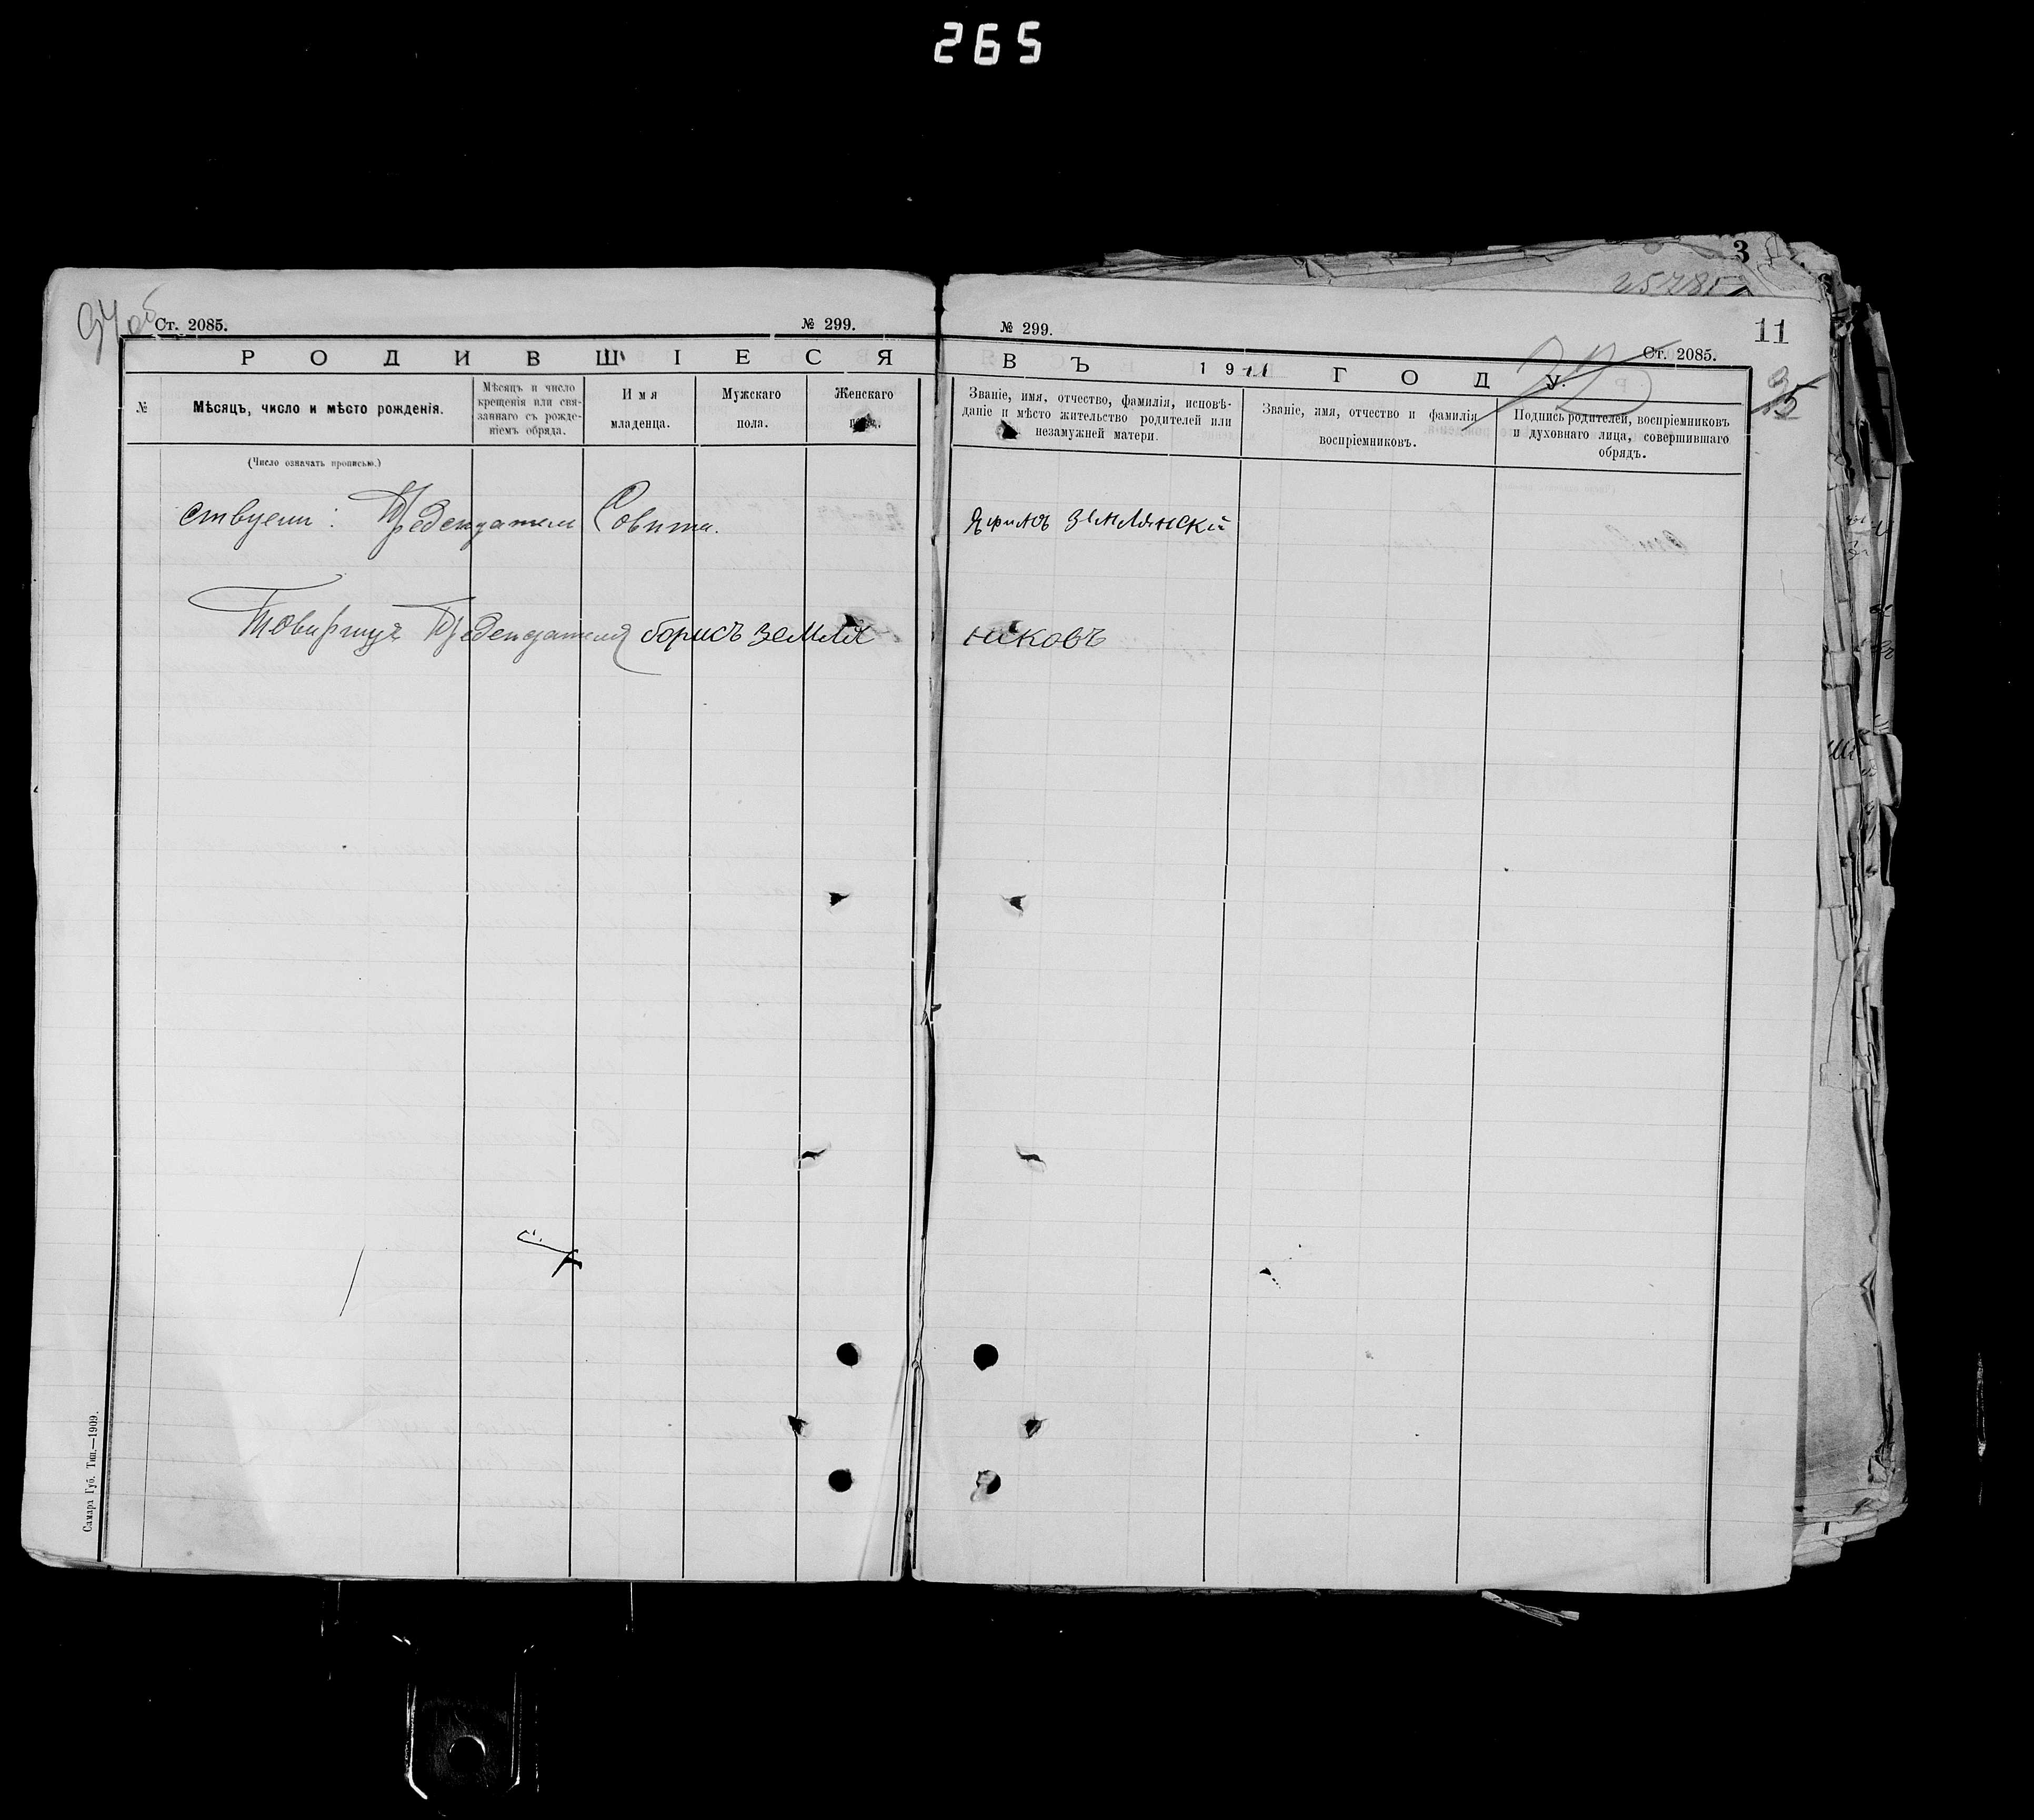 265
3
25785
94 об
Ст. 2085.
№ 299.
№ 299.
Ст. 2085.
11
РОДИВШІЕСЯ
ВЪ 1911 ГОДУ.
№
Мѣсяцъ, число и мѣсто рожденія.
Мѣсяцъ и число
крещенія или свя-
заннаго съ рожде-
ніемъ обряда.
Имя
младенца.
Мужскаго
пола.
Женскаго
пола.
Званіе, имя, отчество, фамилія, исповѣ-
даніе и мѣсто жительство родителей или
незамужней матери.
Званіе, имя, отчество и фамилія
воспріемниковъ.
Подпись родителей, воспріемниковъ
и духовнаго лица, совершившаго
обрядъ.
(Число означать прописью.)
ствуетъ: Председатель Совѣта. Ефимъ Землянскій
Товарищъ Председателя борисъ земля никовъ
Самара Губ. Тип.—1909.